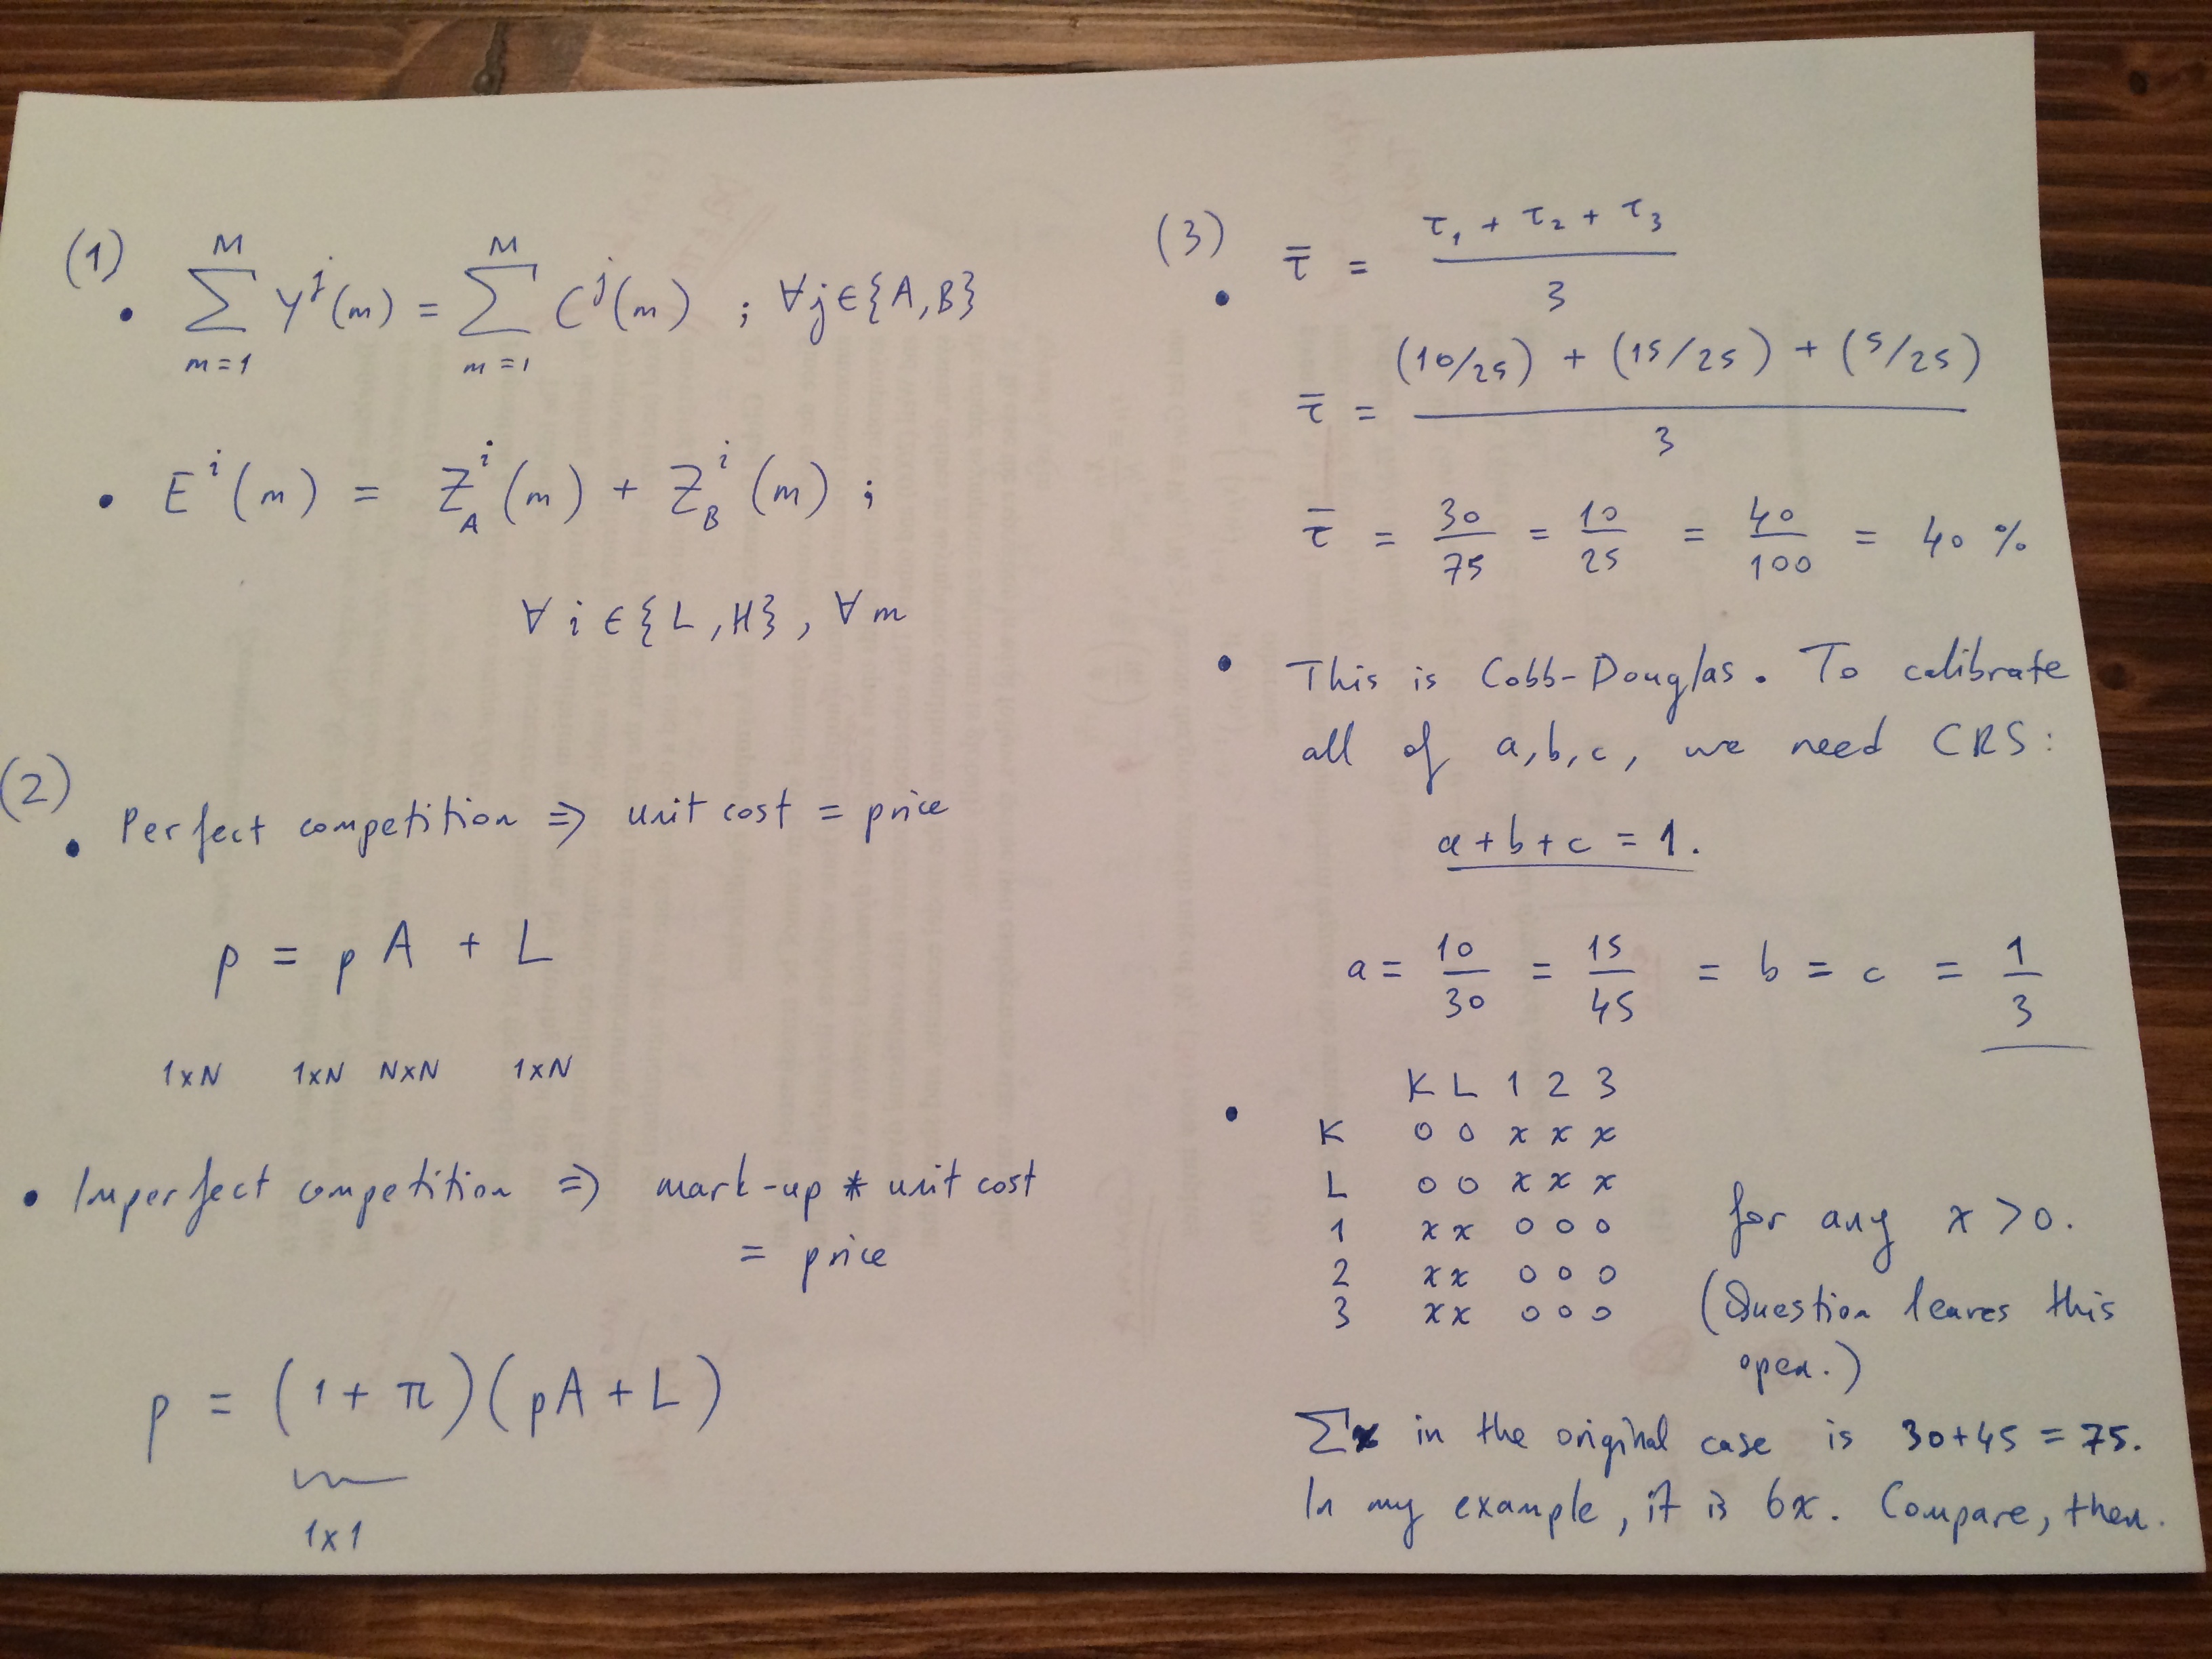 (1)
• \sum_{m=1}^{M} Y^j(m) = \sum_{m=1}^{M} C^j(m) ; ∀j∈{A,B}
• E^i(m) = Z_A^i(m) + Z_B^i(m) ;
∀ i ∈ {L,H}, ∀ m
(2)
• Perfect competition => unit cost = price
p = p A + L
1xN 1xN NxN 1xN
• Imperfect competition => mark-up * unit cost
= price
p = (1 + π)(pA + L)
1x1
(3)
• τ̄ = (τ₁ + τ₂ + τ₃) / 3
τ̄ = ((10/25) + (15/25) + (5/25)) / 3
τ̄ = 30/75 = 10/25 = 40/100 = 40 %
• This is Cobb-Douglas. To calibrate
all of a,b,c, we need CRS:
a + b + c = 1.
a = 10/30 = 15/45 = b = c = 1/3
• K L 1 2 3
K 0 0 x x x
L 0 0 x x x
1 x x 0 0 0
2 x x 0 0 0
3 x x 0 0 0
for any x > 0.
(Question leaves this
open.)
Σx in the original case is 30+45 = 75.
In my example, it is 6x. Compare, then.